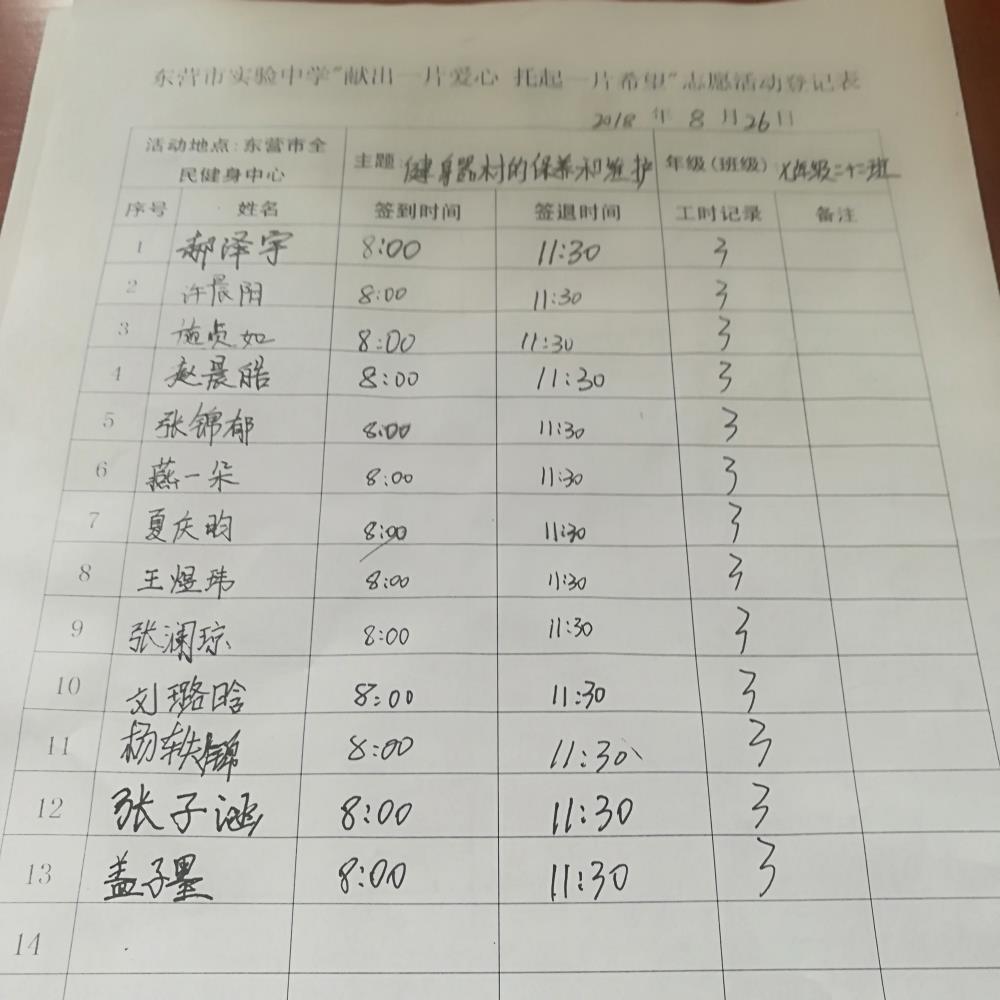 东营市实验中学"献出一片爱心 托起一片希望"志愿活动登记表
2018 年 8 月 26 日
活动地点:东营市全民健身中心 主题:健身器材的保养和维护 年级(班级) 七年级二十二班
序号 姓名 签到时间 签退时间 工时记录 备注
1 郝泽宇 8:00 11:30 3
2 许晨阳 8:00 11:30 3
3 施贞如 8:00 11:30 3
4 赵晨皓 8:00 11:30 3
5 张锦郁 8:00 11:30 3
6 燕一朵 8:00 11:30 3
7 夏庆昀 8:00 11:30 3
8 王煜玮 8:00 11:30 3
9 张澜琼 8:00 11:30 3
10 刘璐晗 8:00 11:30 3
11 杨轶锦 8:00 11:30 3
12 张子涵 8:00 11:30 3
13 盖子墨 8:00 11:30 3
14